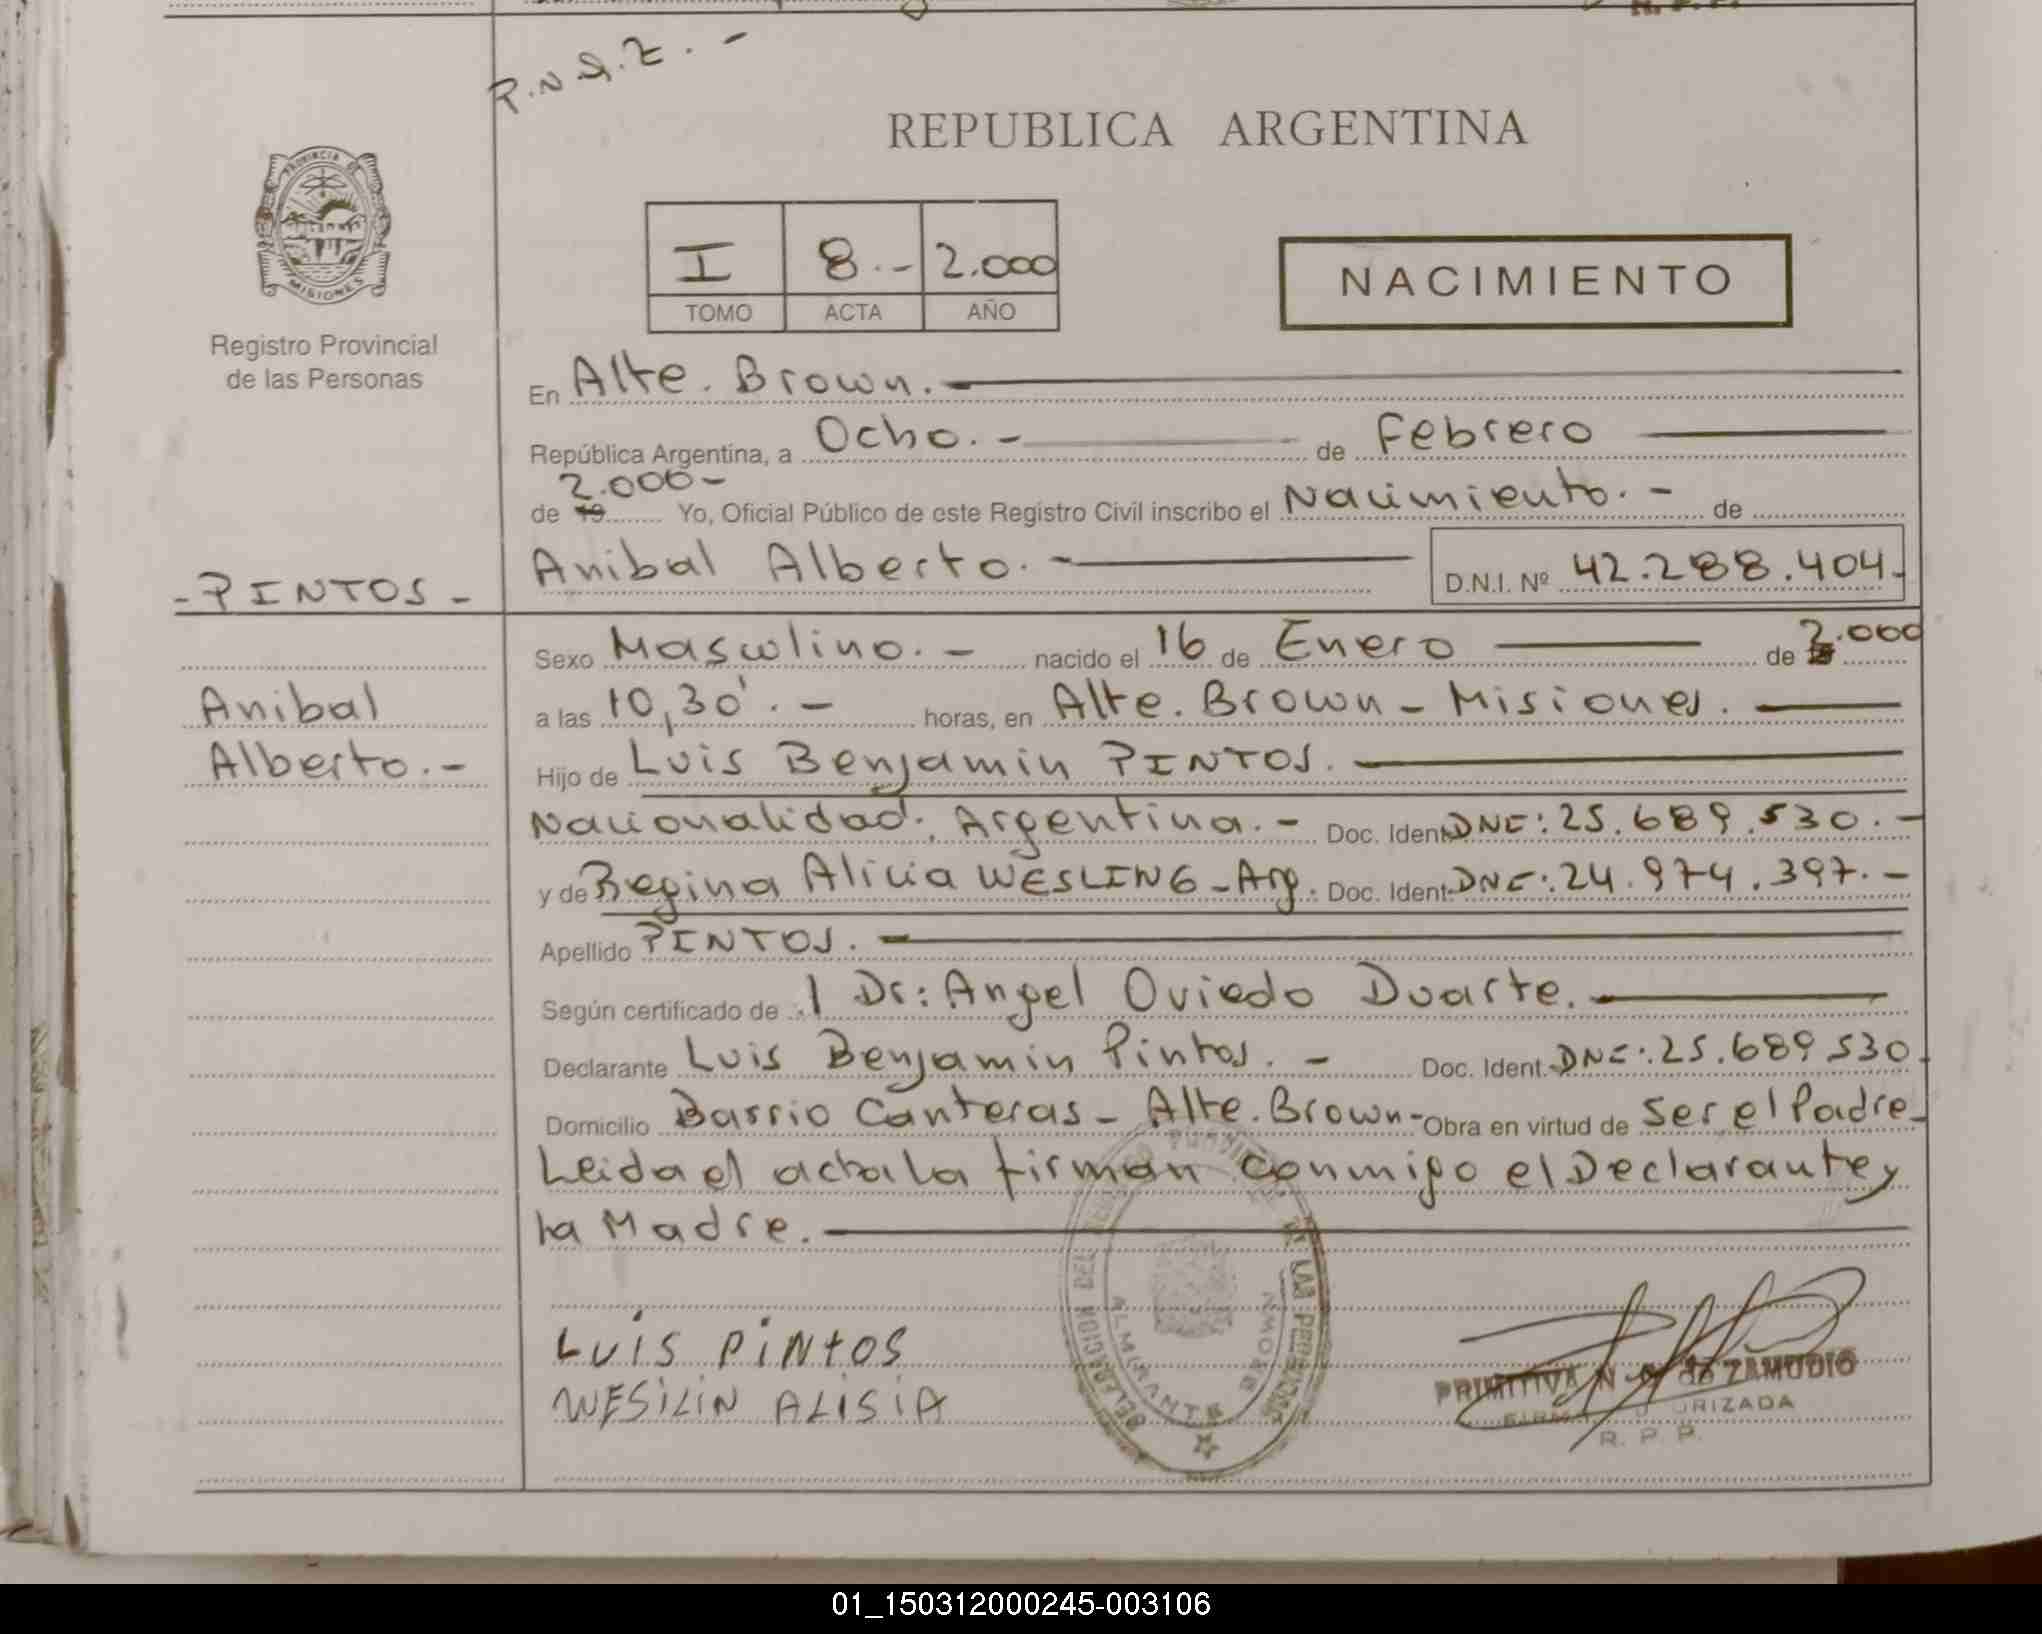 R.N.A.Z.-
REPUBLICA ARGENTINA
PROVINCIA DE MISIONES
Registro Provincial
de las Personas
I 8.- 2.000
TOMO ACTA AÑO
NACIMIENTO
En Alte. Brown.
República Argentina, a Ocho.- de Febrero
2.000-
de 19 Yo, Oficial Público de este Registro Civil inscribo el Nacimiento.- de
-PINTOS- Anibal Alberto.- D.N.I. Nº 42.288.404-
Sexo Masculino.- nacido el 16 de Enero de 2.000
Anibal a las 10,30'.- horas, en Alte. Brown - Misiones.
Alberto.- Hijo de Luis Benjamin PINTOS.
Nacionalidad: Argentina.- Doc. Ident. DNI: 25.689.530.-
y de Regina Alicia WESLING - Arg. Doc. Ident. DNI: 24.974.397.-
Apellido PINTOS.
Según certificado de l Dr: Angel Oviedo Duarte.
Declarante Luis Benjamin Pintos.- Doc. Ident. DNI: 25.689.530.
Domicilio Barrio Canteras - Alte. Brown- Obra en virtud de Ser el Padre-
Leida el acta la firman conmigo el Declarante y
la Madre.
DELEGACION DEL REGISTRO PROVINCIAL DE LAS PERSONAS
ALMIRANTE BROWN
LUIS PINTOS
WESILIN ALISIA
PRIMITIVA N. de ZAMUDIO
FIRMA AUTORIZADA
R. P. P.
01_150312000245-003106